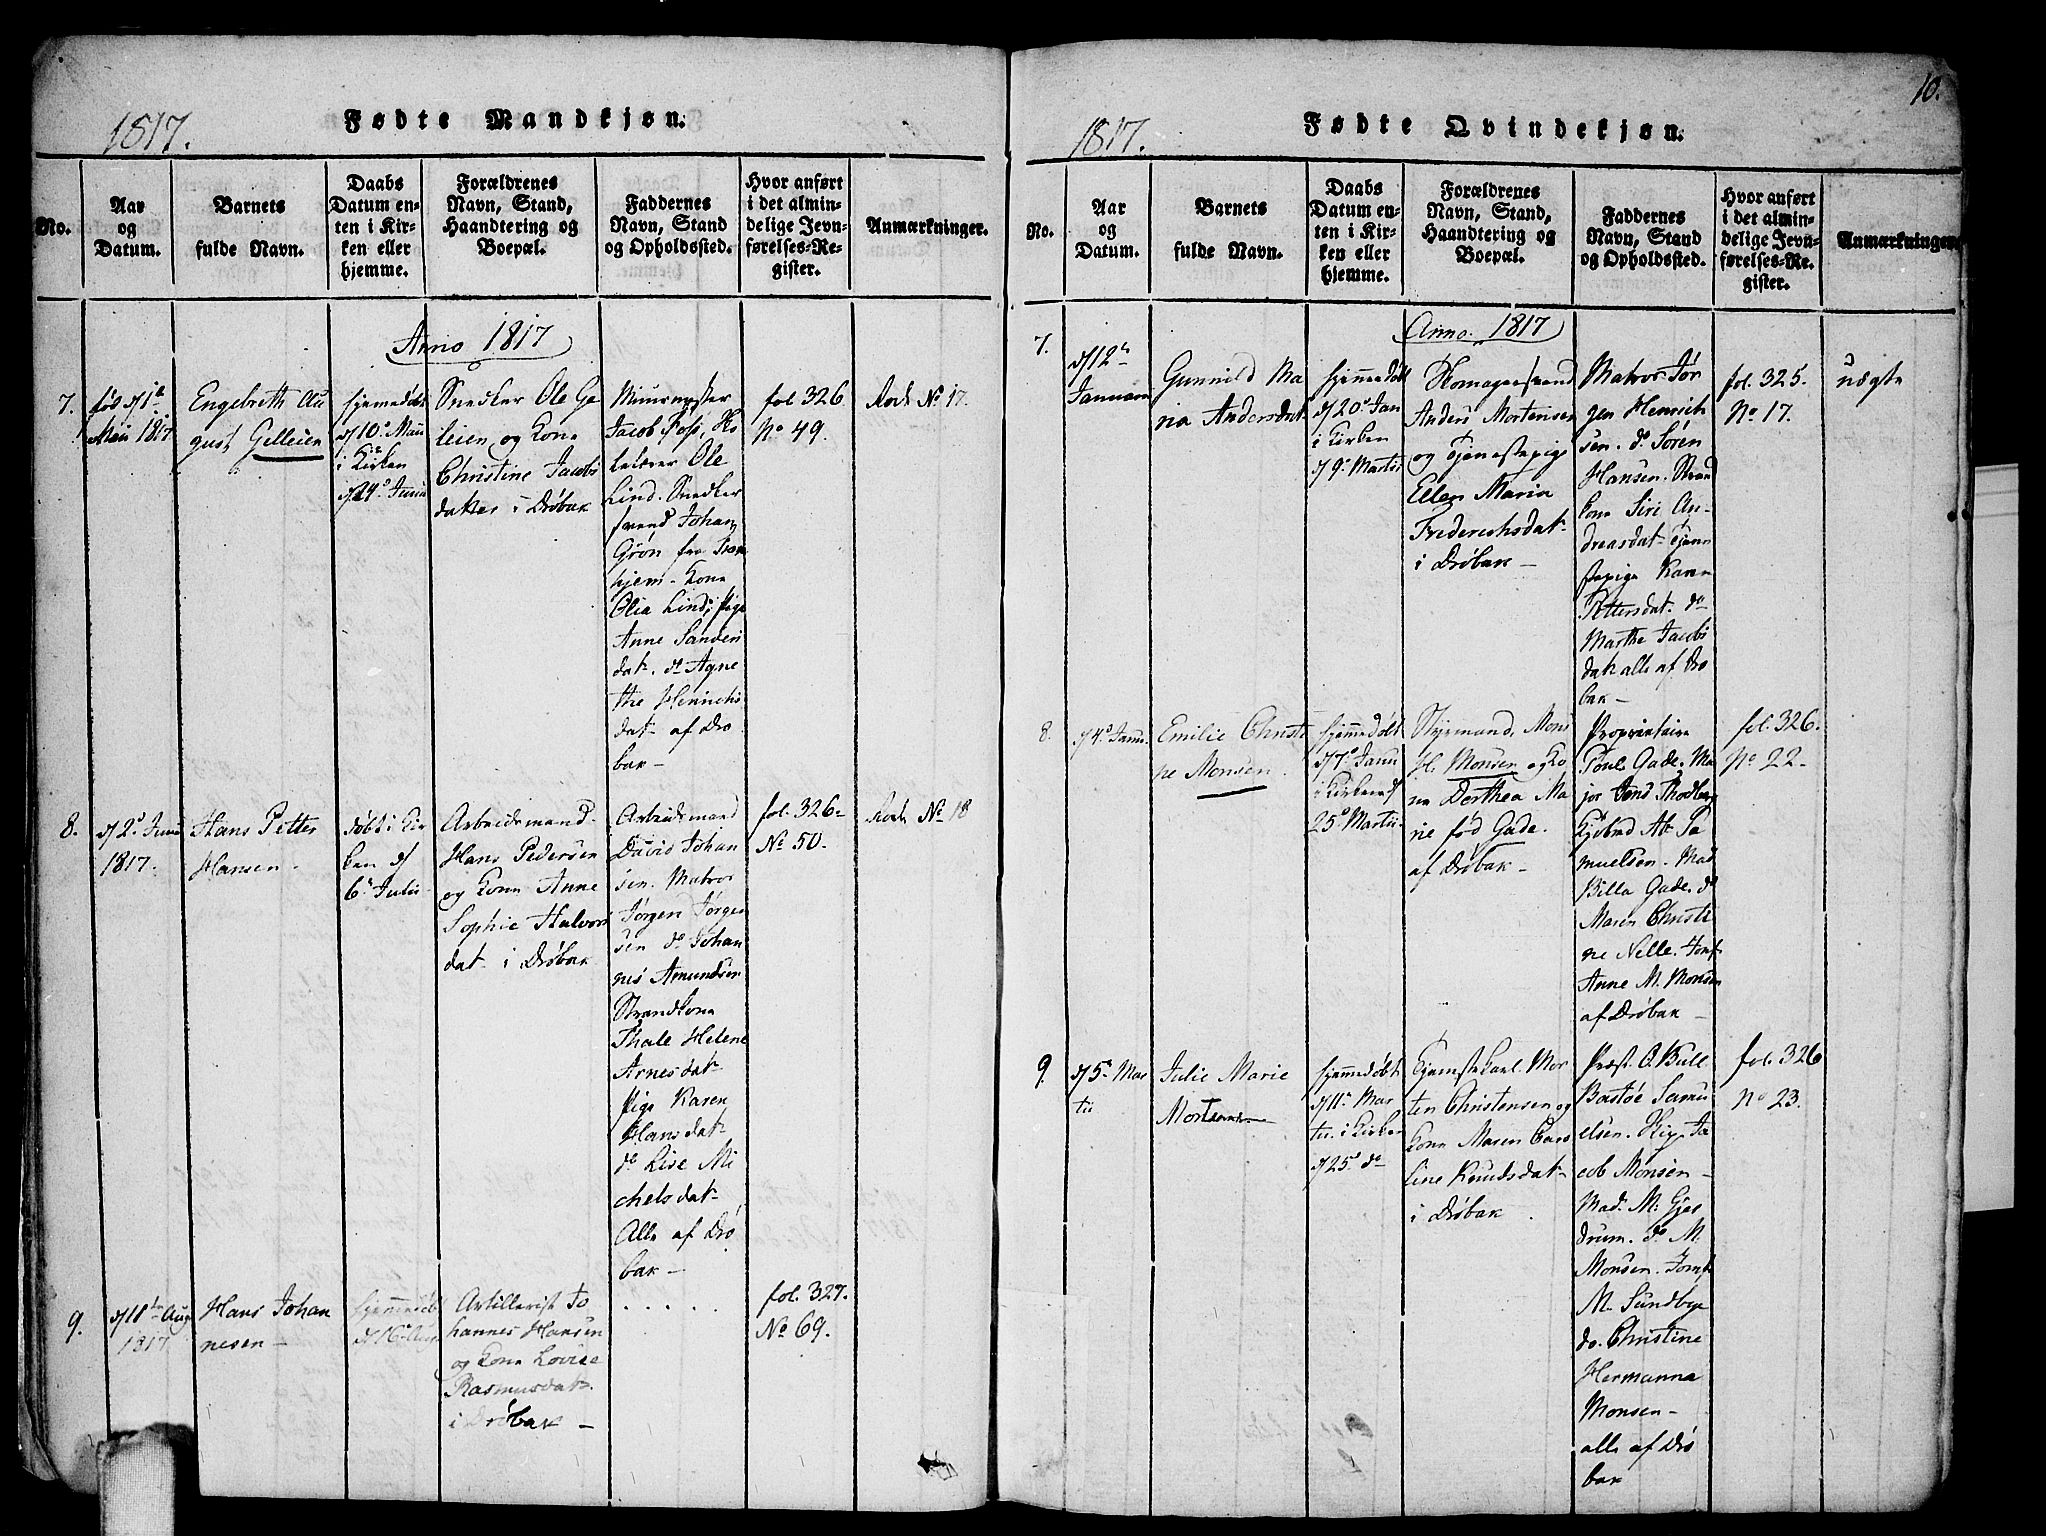 1817.
Fødte Mandkjøn.
No.
Aar
og
Datum.
Barnets
fulde Navn.
Daabs
Datum en-
ten i Kir-
ken eller
hjemme.
Forældrenes
Navn, Stand,
Haandtering og
Boepæl.
Faddernes
Navn, Stand
og Opholdssted.
Hvor anført
i det almin-
delige Jevn-
førelses-Re-
gister.
Anmærkninger.
Anno 1817
7.
fød d/1te
Maii 1817
Engebreth Au
gust Gelleien
hjemedøbt
d/10de Maii
i Kirken
d/24d Junii
Snedker Ole Ge
leien, og Kone
Christine Jacobs
datter i Drøbak
Muurmester
Jacob Foss, Ho
Ole
Lind. Snedker
svend Johan
Grøn fra
hjem. Kone
Olia Lind, Pige
Anne Sanders
dat. do Agne
the Henrichs
dat. af Drø
bak
fol 326
No 49.
Rode No 17.
8.
d/2d Junii
1817.
Hans Petter
Hansen
døbt i Kir
ken d/
6te Julii
Arbeidsmand
Hans Pedersen
og Kone Anne
Sophie Halvors
dat. i Drøbak
Arbeidsmand
David Johan
sen. Matros
Jørgen Jørgen
sen do Johan
nes Amundsen
Strandkone
Thale Helene
Arnesdat
Pige Karen
Hansdat
do Lise Mi
chelsdat
Alle af Drø
bak
fol. 326
No 50.
Rode No 18
9.
d/11te Aug
1817
Hans Johan
nesen
hjemmedøbt
d/16 Aug
Artillerist Jo
hannes Hansen
og Kone Lovise
Rasmusdat.
i Drøbak
. . . . .
fol. 327.
No 69.
10.
1817.
Fødte Qvindekjøn.
No.
Aar
og
Datum.
Barnets
fulde Navn.
Daabs
Datum en-
ten i Kir-
ken eller
hjemme.
Forældrenes
Navn, Stand,
Haandtering og
Boepæl.
Faddernes
Navn, Stand
og Opholdssted.
Hvor anført
i det almin-
delige Jevn-
førelses-Re-
gister.
Anmærkninger
Anno 1817
7.
d/12te
Januarii
Gunnild Ma
ria Andersdat.
hjemmedøbt
d/20d Jan
i Kirken
d/9de Martii
Skomagersvend
Anders Mortensen
og Tjenestepige
Ellen Maria
Friderichsdat.
i Drøbak
Matros Jør
gen Henrich
sen. do Søren
Hansen. Stran
kone Siri An-
dreasdat. Tjene
stepige Karen
Pettersdat. do
Marthe Jacobs
dat alle af Drø
bak
fol. 325.
No 17.
uægte
8.
d/4d Janu.
Emilie Christi
ne Monsen
hjemmedøbt
d/7d Janu
i Kirken d/
25d Martii
Styrmand, Mons
H. Monsen og Ko
ne Dorthea Ma
rie fød Gade.
af Drøbak
Proprietaire
Poul Gade. Ma
jor Jens Thodberg
Kjøbmd Ab. Sa
muelsen. Mad.
Billa Gade. do
Maren Christi
ne Nelle. Jomf
Anne M. Monsen
af Drøbak
fol. 326.
No 22
9.
d/5te Mar
tii
Julie Marie
Mortens
hjemmedøbt
d/11te Mar
tii. i Kirken
d/25d do
Tjenistekarl Mor
ten Christensen og
Kone Maren Caro
line Knudsdat
i Drøbak
Præst. O. Bull
Bastøe Samu
elsen. Ja
cob Monsen
Mad. M. Gjes
drum. do M.
Monsen. Jomf
M. Sundbye
do. Christine
Hermanna
Monsen
alle af Drø
bak
fol. 326
No 23.